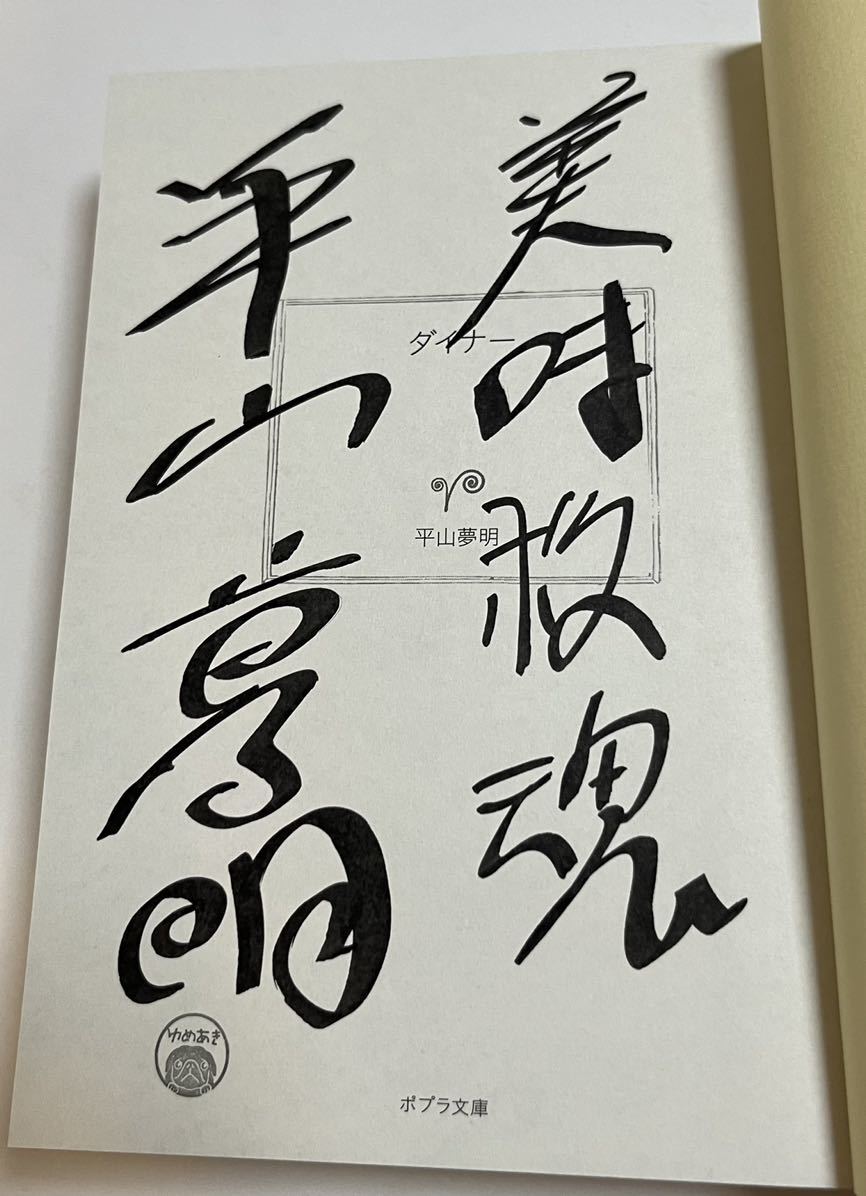 美味救魂
平山夢明
ダイナー
平山夢明
ゆめあき
ポプラ文庫